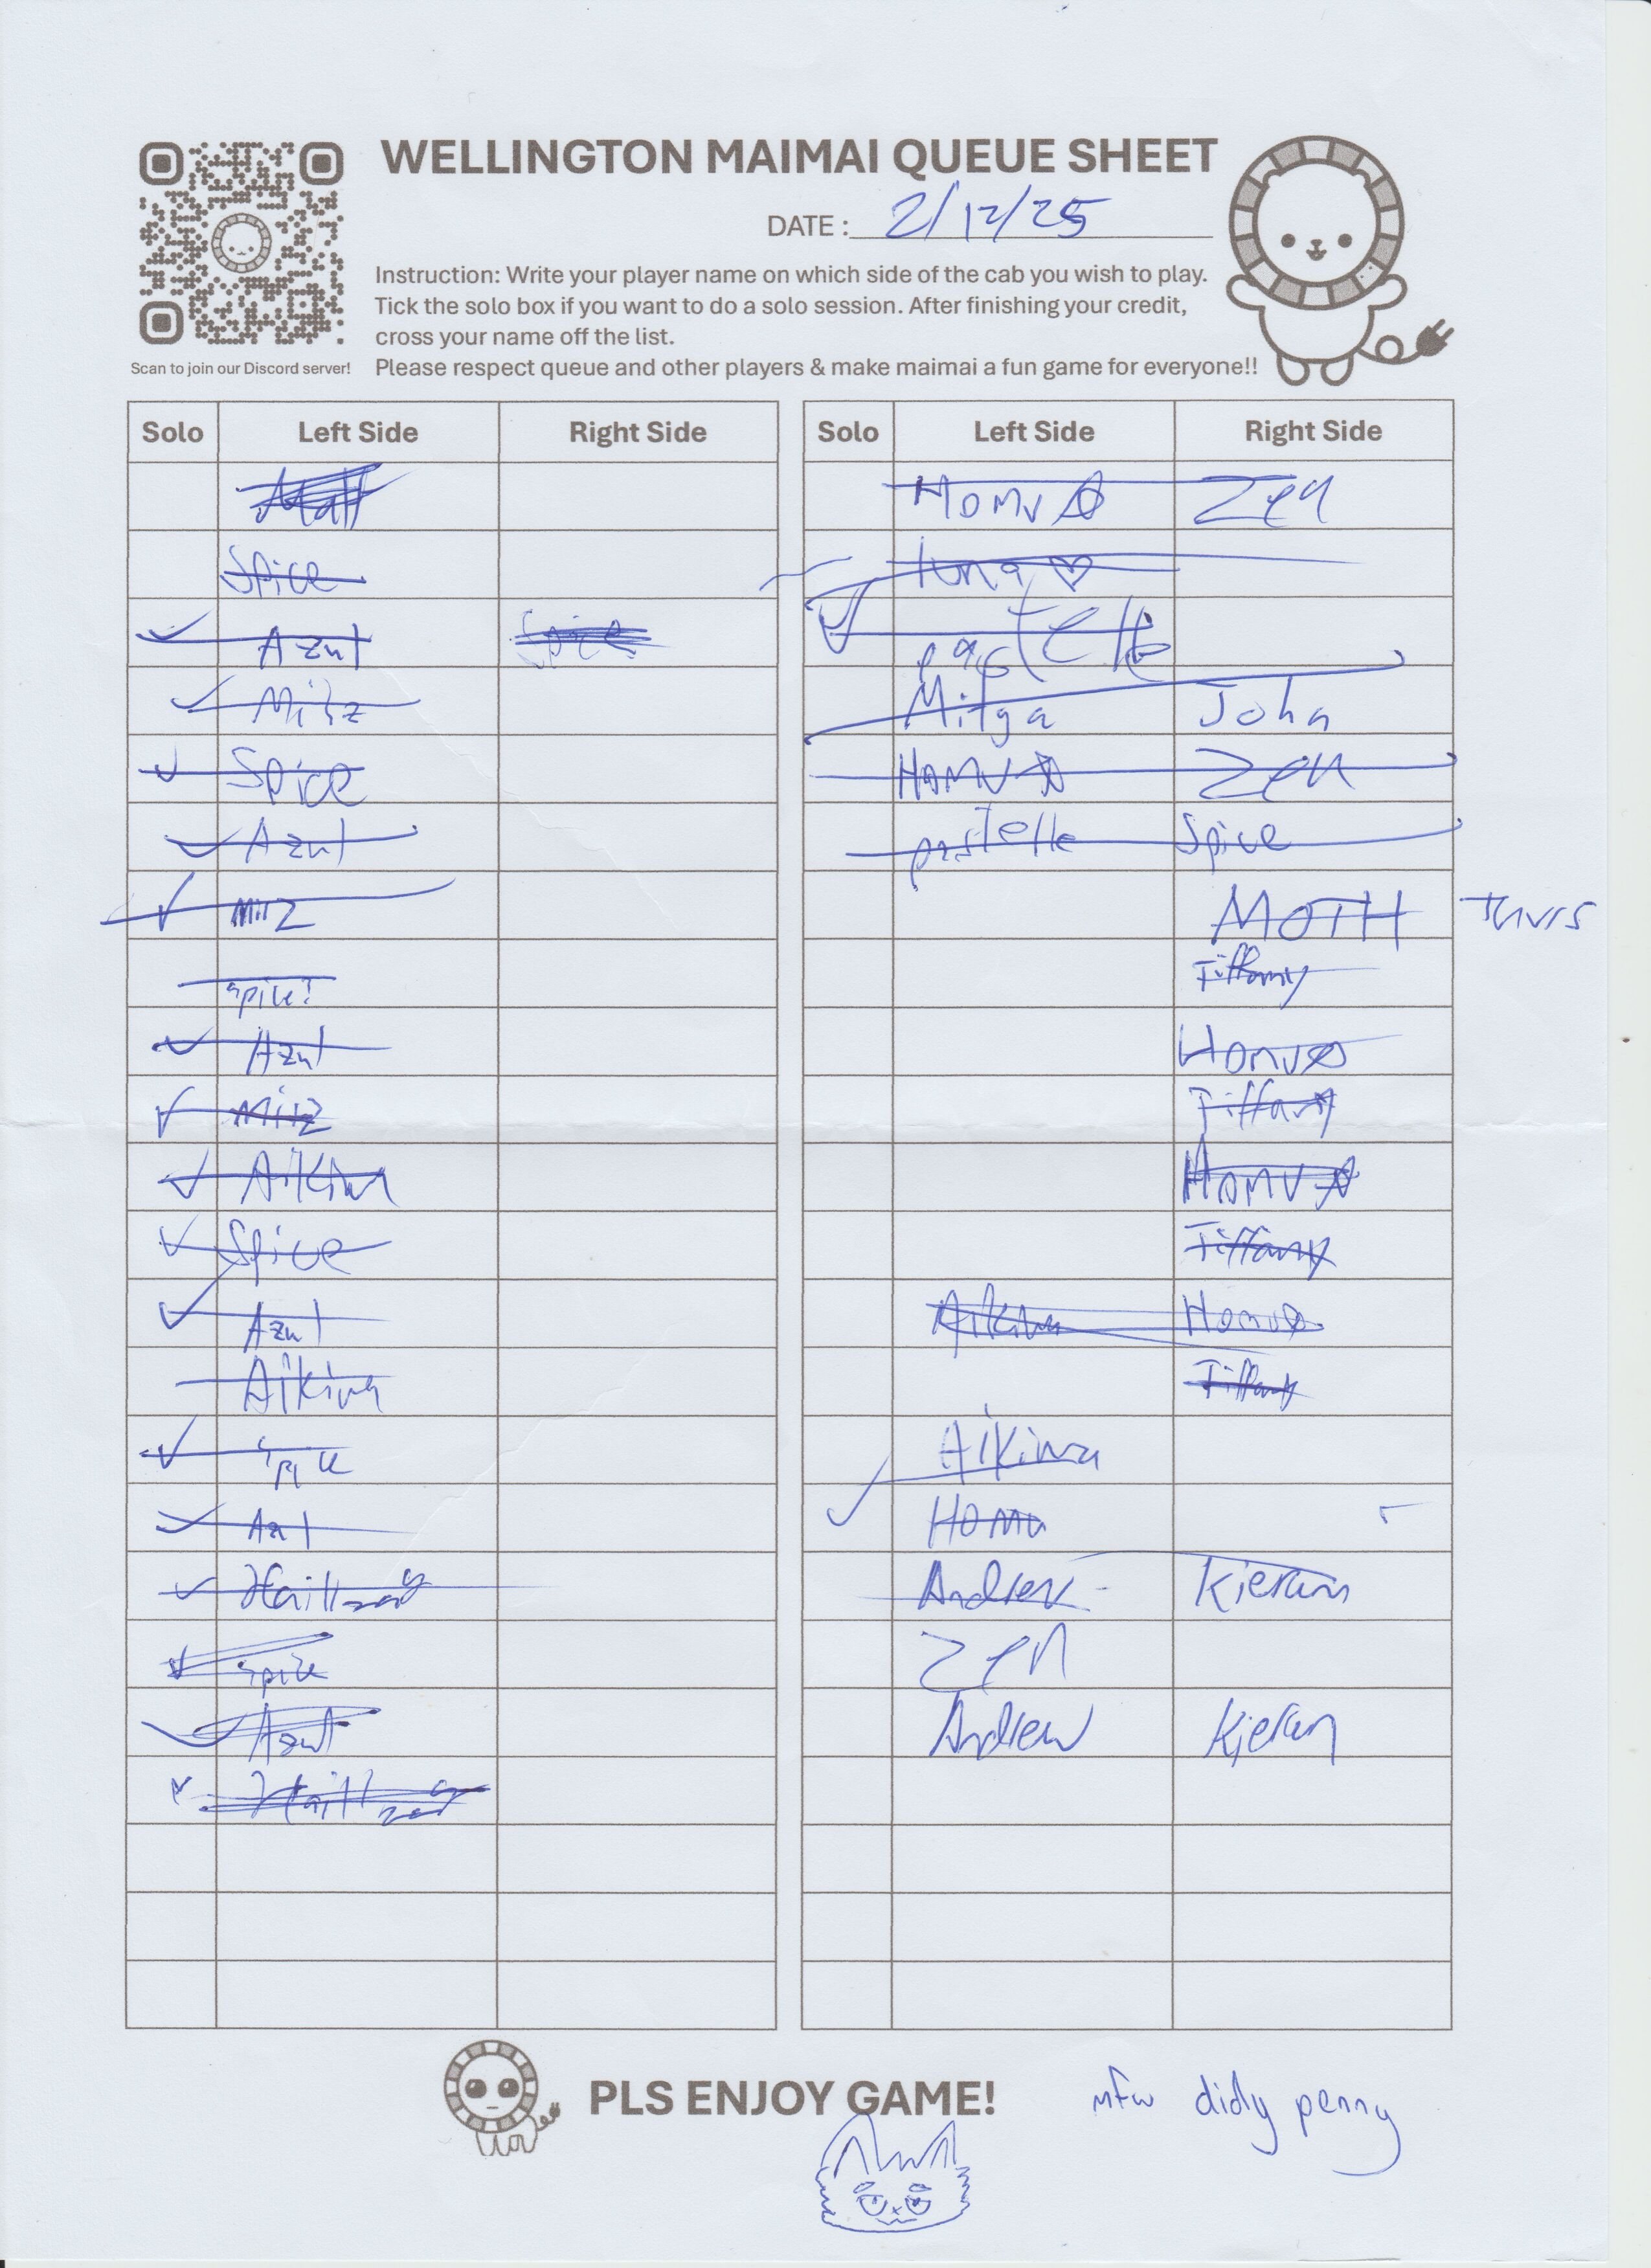 WELLINGTON MAIMAI QUEUE SHEET
DATE: 2/12/25
Instruction: Write your player name on which side of the cab you wish to play.
Tick the solo box if you want to do a solo session. After finishing your credit,
cross your name off the list.
Please respect queue and other players & make maimai a fun game for everyone!!
Scan to join our Discord server!
Solo Left Side Right Side
Matt
Spice
✓ Azul Spice
✓ Mitz
✓ Spice
✓ Azul
✓ Mitz
Spice!
✓ Azul
✓ Mitz
✓ Aikiwa
✓ Spice
✓ Azul
Aikiwa
✓ Spice
✓ Azul
✓ Haillzog
✓ Spice
✓ Azul
✓ Haillzog
Solo Left Side Right Side
Homu☆ Zen
tuna ♡
✓ pastelle
Mitga John
HOMU☆ Zen
pastelle Spice
MOTH
Tiffany
Homu☆
Tiffany
HOMU☆
Tiffany
Aikiwa Homu☆
Tiffany
Aikiwa
✓ Homu
Andrew Kieran
Zen
Andrew Kieran
PLS ENJOY GAME!
mfw didly penny